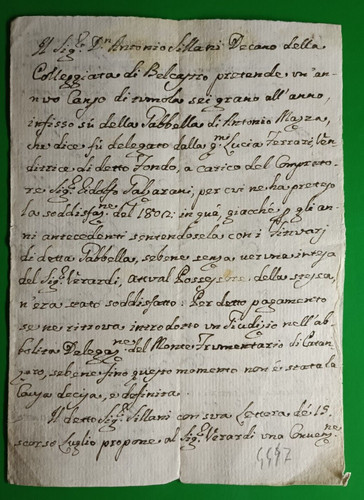 Il Sig.r D.n Antonio Sillani Decano della
Colleggiata di Belcastro pretende un'an-
nuo Canso di tumola sei grano all'anno,
infisso sù della Gabbella di Antonio Mazza,
che dice fù delegato dalla q.m Lucia Ferrari Ven-
ditrice di detto Fondo, a carico del Comprato-
re Sig.r Galaparani, per cui ne ha preteso
la soddisfaz.ne del 1802: in quà, giacchè p. gli an-
ni antecedenti sentendosela con i
di detta Gabbella, sebene senza veruna intesa
del Sig.r Verardi, attual Possessore della stessa,
n'era stato soddisfatto: Per detto pagamento
se ne ritrova introdotto un Giudizio nell'ab-
bolita Delegaz.ne del Monte Frumentario di Catan-
zaro, sebene fino questo momento non è stata la
Causa decisa, e definita.
Il detto Sig.r Sillani con sua Lettera de' 15.
scorso Luglio propone al Sig.r Verardi una Conven.ne